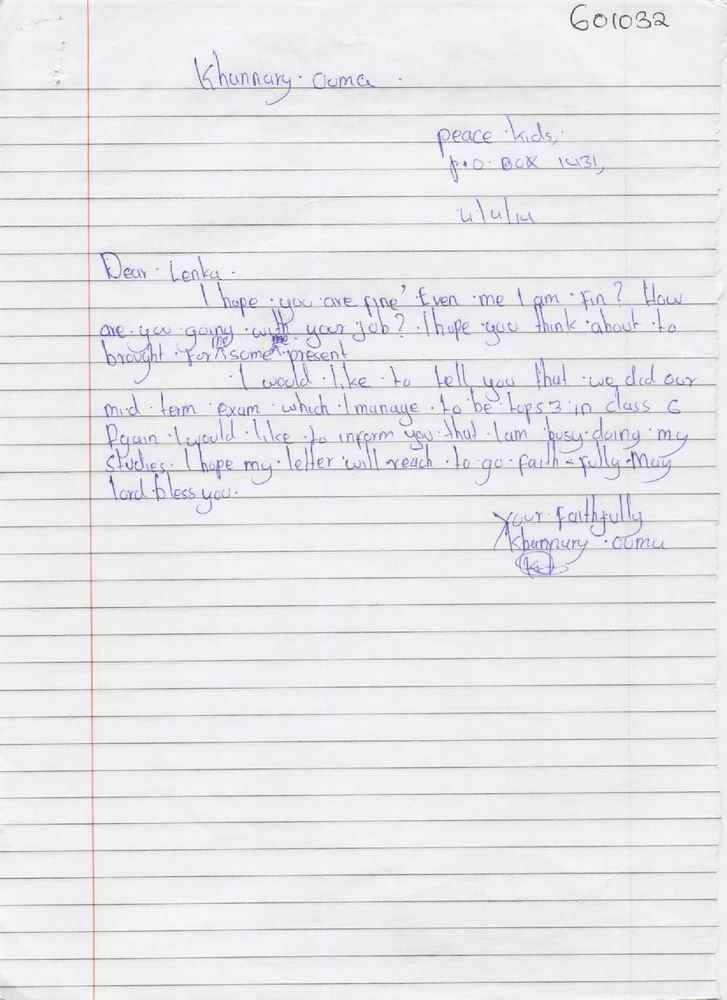 601032
Khannary. Ouma.
peace kids,
P.O. BOX 1431,
4/4/14
Dear Lenka.
I hope you are fine' Even me I am fin? How
are you going with your job? I hope you think about to
brought for me some present
I would like to tell you that we did our
mid term exam which I manage to be tops 3 in class 6
Again I would like to inform you that I am busy doing my
studies. I hope my letter will reach to go faith-fully May
lord bless you.
your faithfully
Khannary Ouma